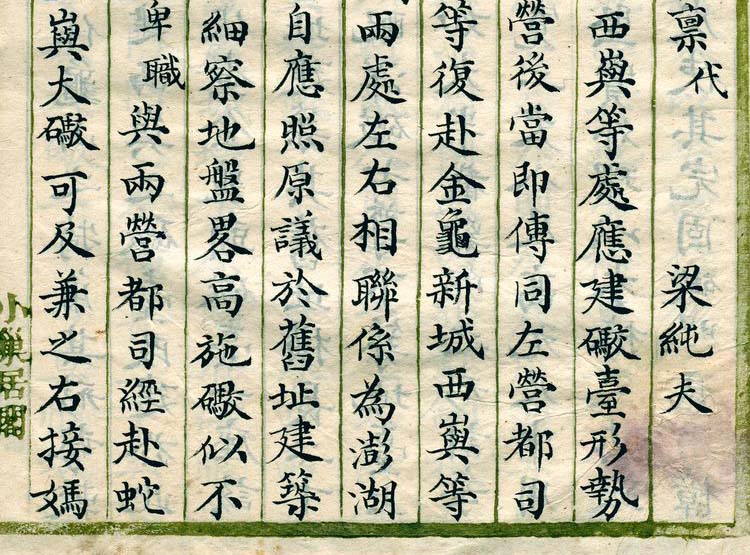 禀代 梁純夫
西嶼等處應建礮臺形勢
營後當即傳同左營都司
等復赴金龜新城西嶼等
兩處左右相聯係為澎湖
自應照原議於舊址建築
細察地盤畧高施礮似不
卑職與兩營都司經赴蛇
嶼大礮可及兼之右接媽
小巢居閣